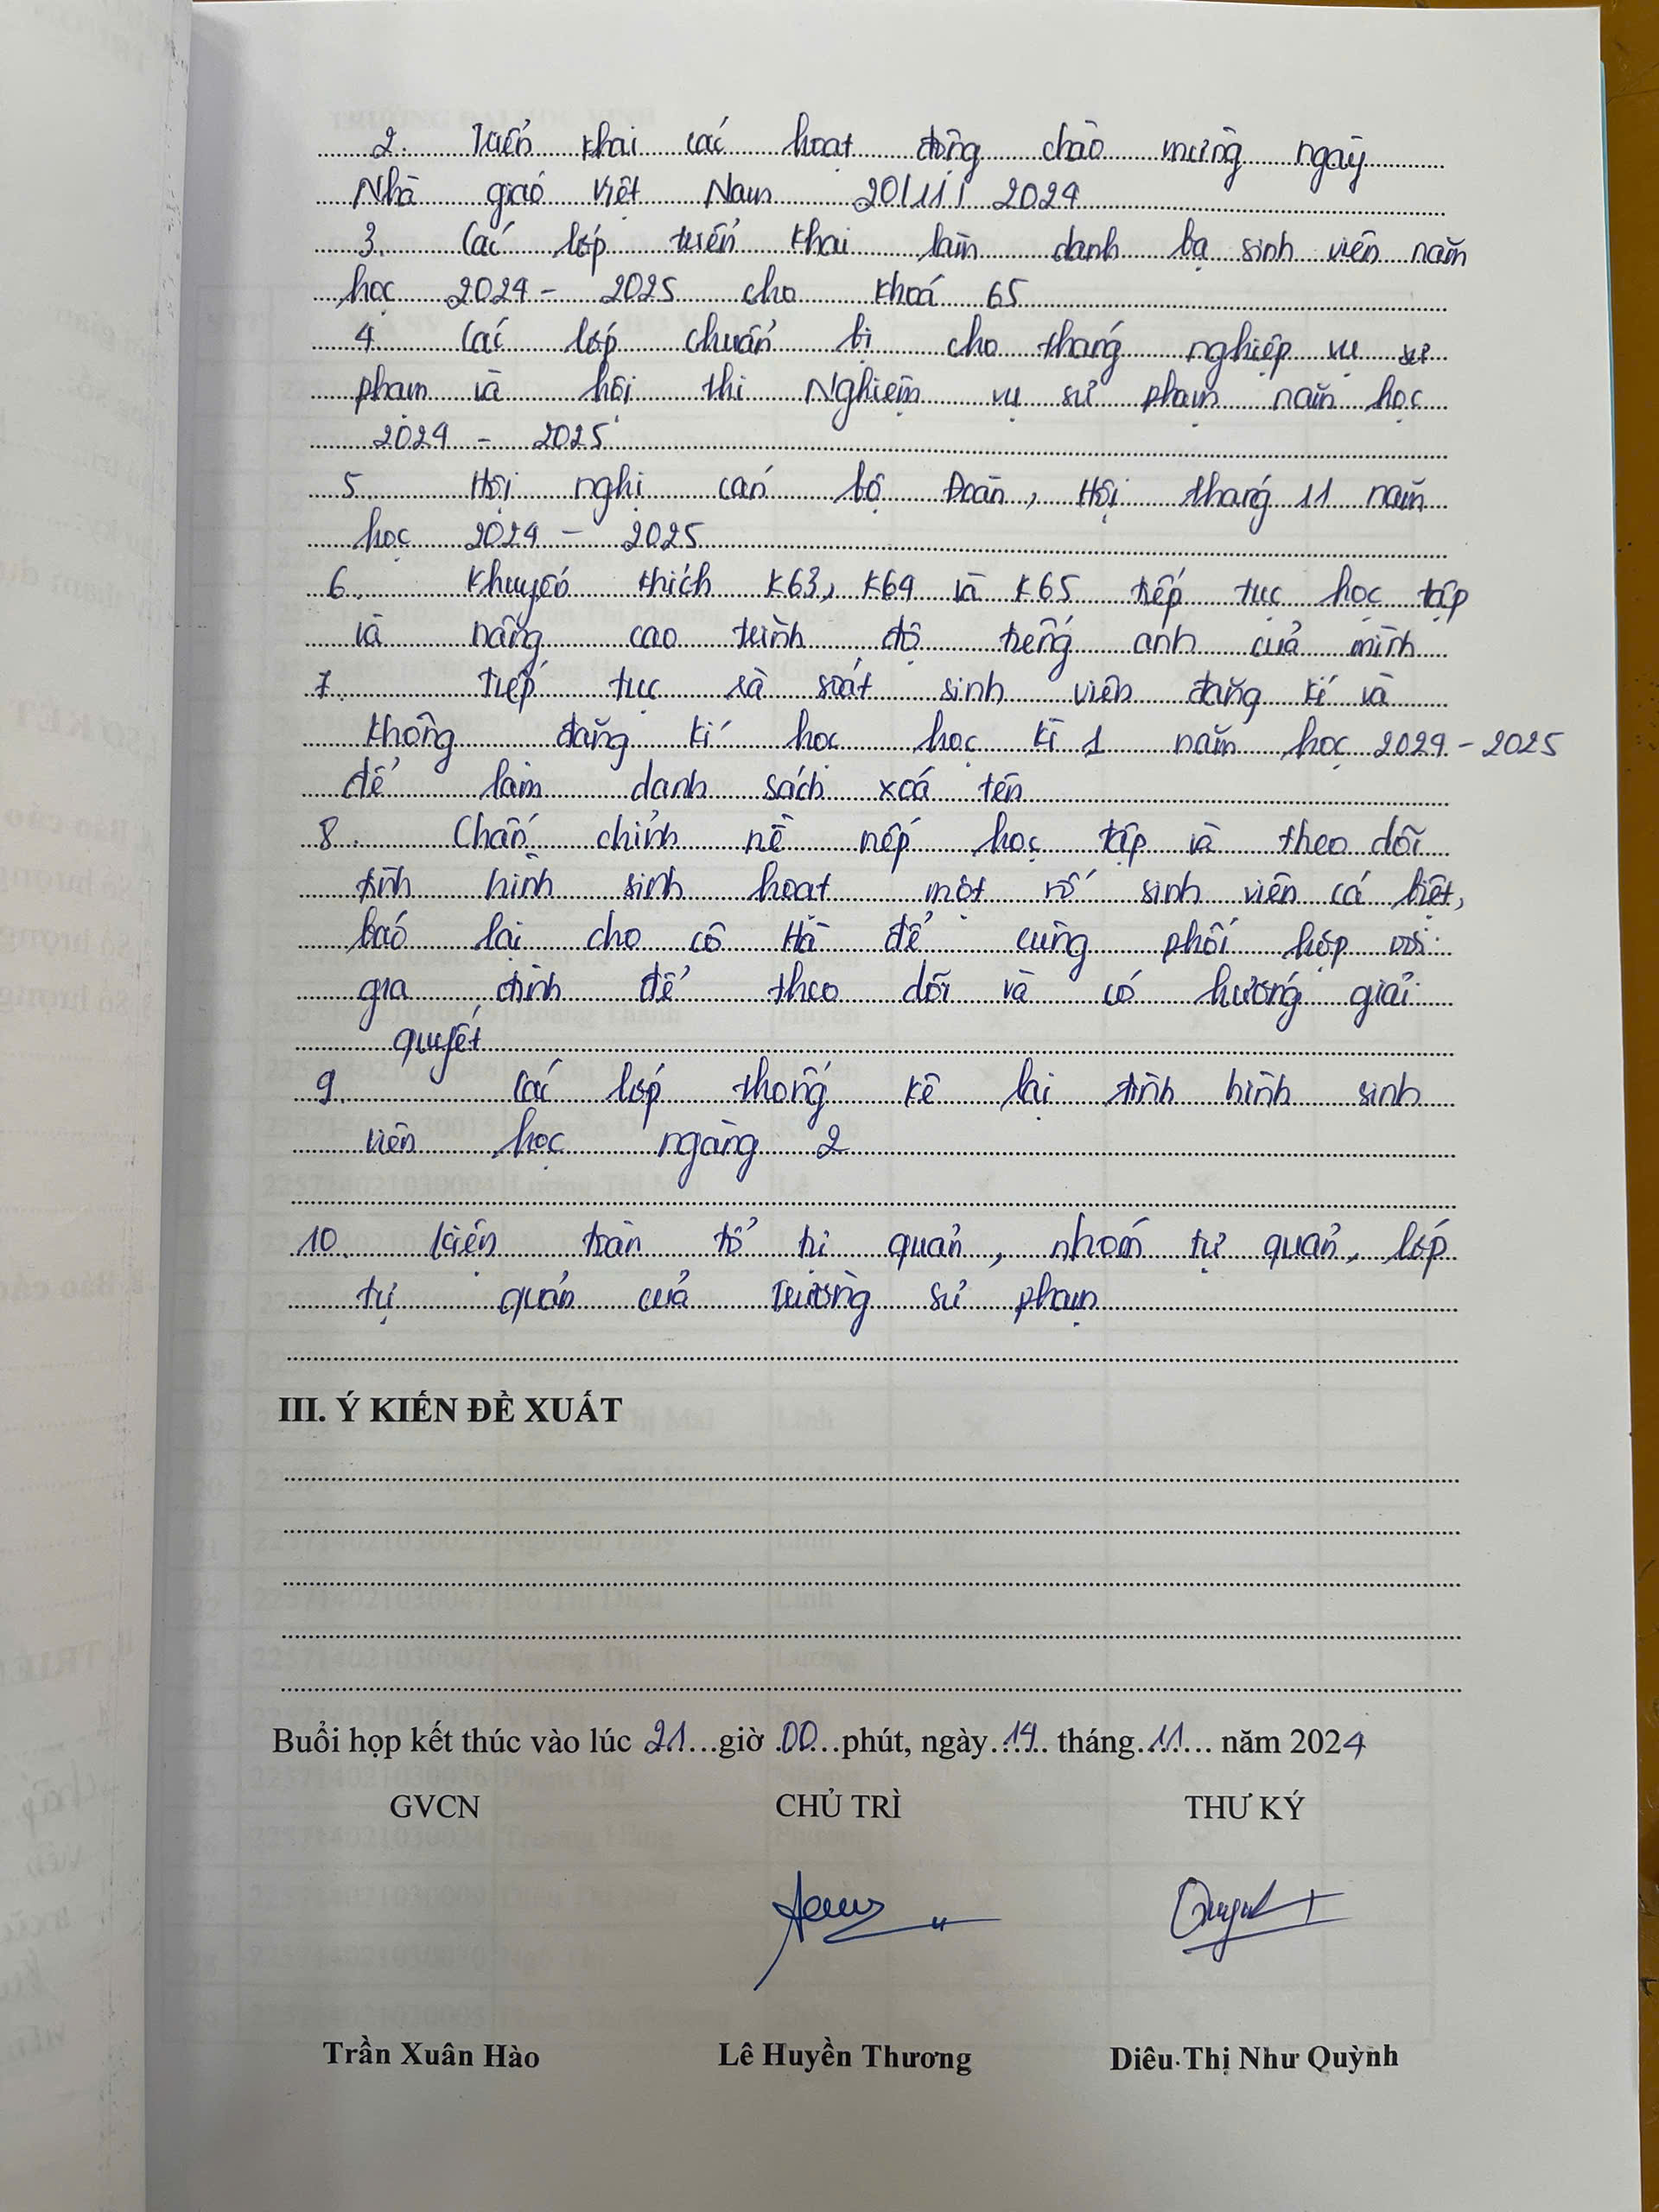 2. Triển khai các hoạt động chào mừng ngày
Nhà giáo Việt Nam 20/11/ 2024
3. Các lớp triển khai làm danh bạ sinh viên năm
học 2024 - 2025 cho khoá 65
4. Các lớp chuẩn bị cho tháng nghiệp vụ sư
phạm và hội thi Nghiệm vụ sư phạm năm học
2024 - 2025
5. Hội nghị cán bộ Đoàn, Hội tháng 11 năm
học 2024 - 2025
6. Khuyến thích K63, K64 và K65 tiếp tục học tập
và nâng cao trình độ tiếng anh của mình
7. tiếp tục rà soát sinh viên đăng kí và
không đăng kí học học kì 1 năm học 2024 - 2025
để làm danh sách xoá tên
8. Chấn chỉnh nề nếp học tập và theo dõi
tình hình sinh hoạt một số sinh viên cá biệt,
báo lại cho cô Hà để cùng phối hợp với
gia đình để theo dõi và có hướng giải
quyết
9. Các lớp thống kê lại tình hình sinh
viên học ngàng 2
10. kiện toàn tổ tự quản, nhóm tự quản, lớp
tự quản của Trường sư phạm
III. Ý KIẾN ĐỀ XUẤT
Buổi họp kết thúc vào lúc 21...giờ 00...phút, ngày 14 tháng 11... năm 2024
GVCN CHỦ TRÌ THƯ KÝ
Trần Xuân Hào Lê Huyền Thương Diêu Thị Như Quỳnh